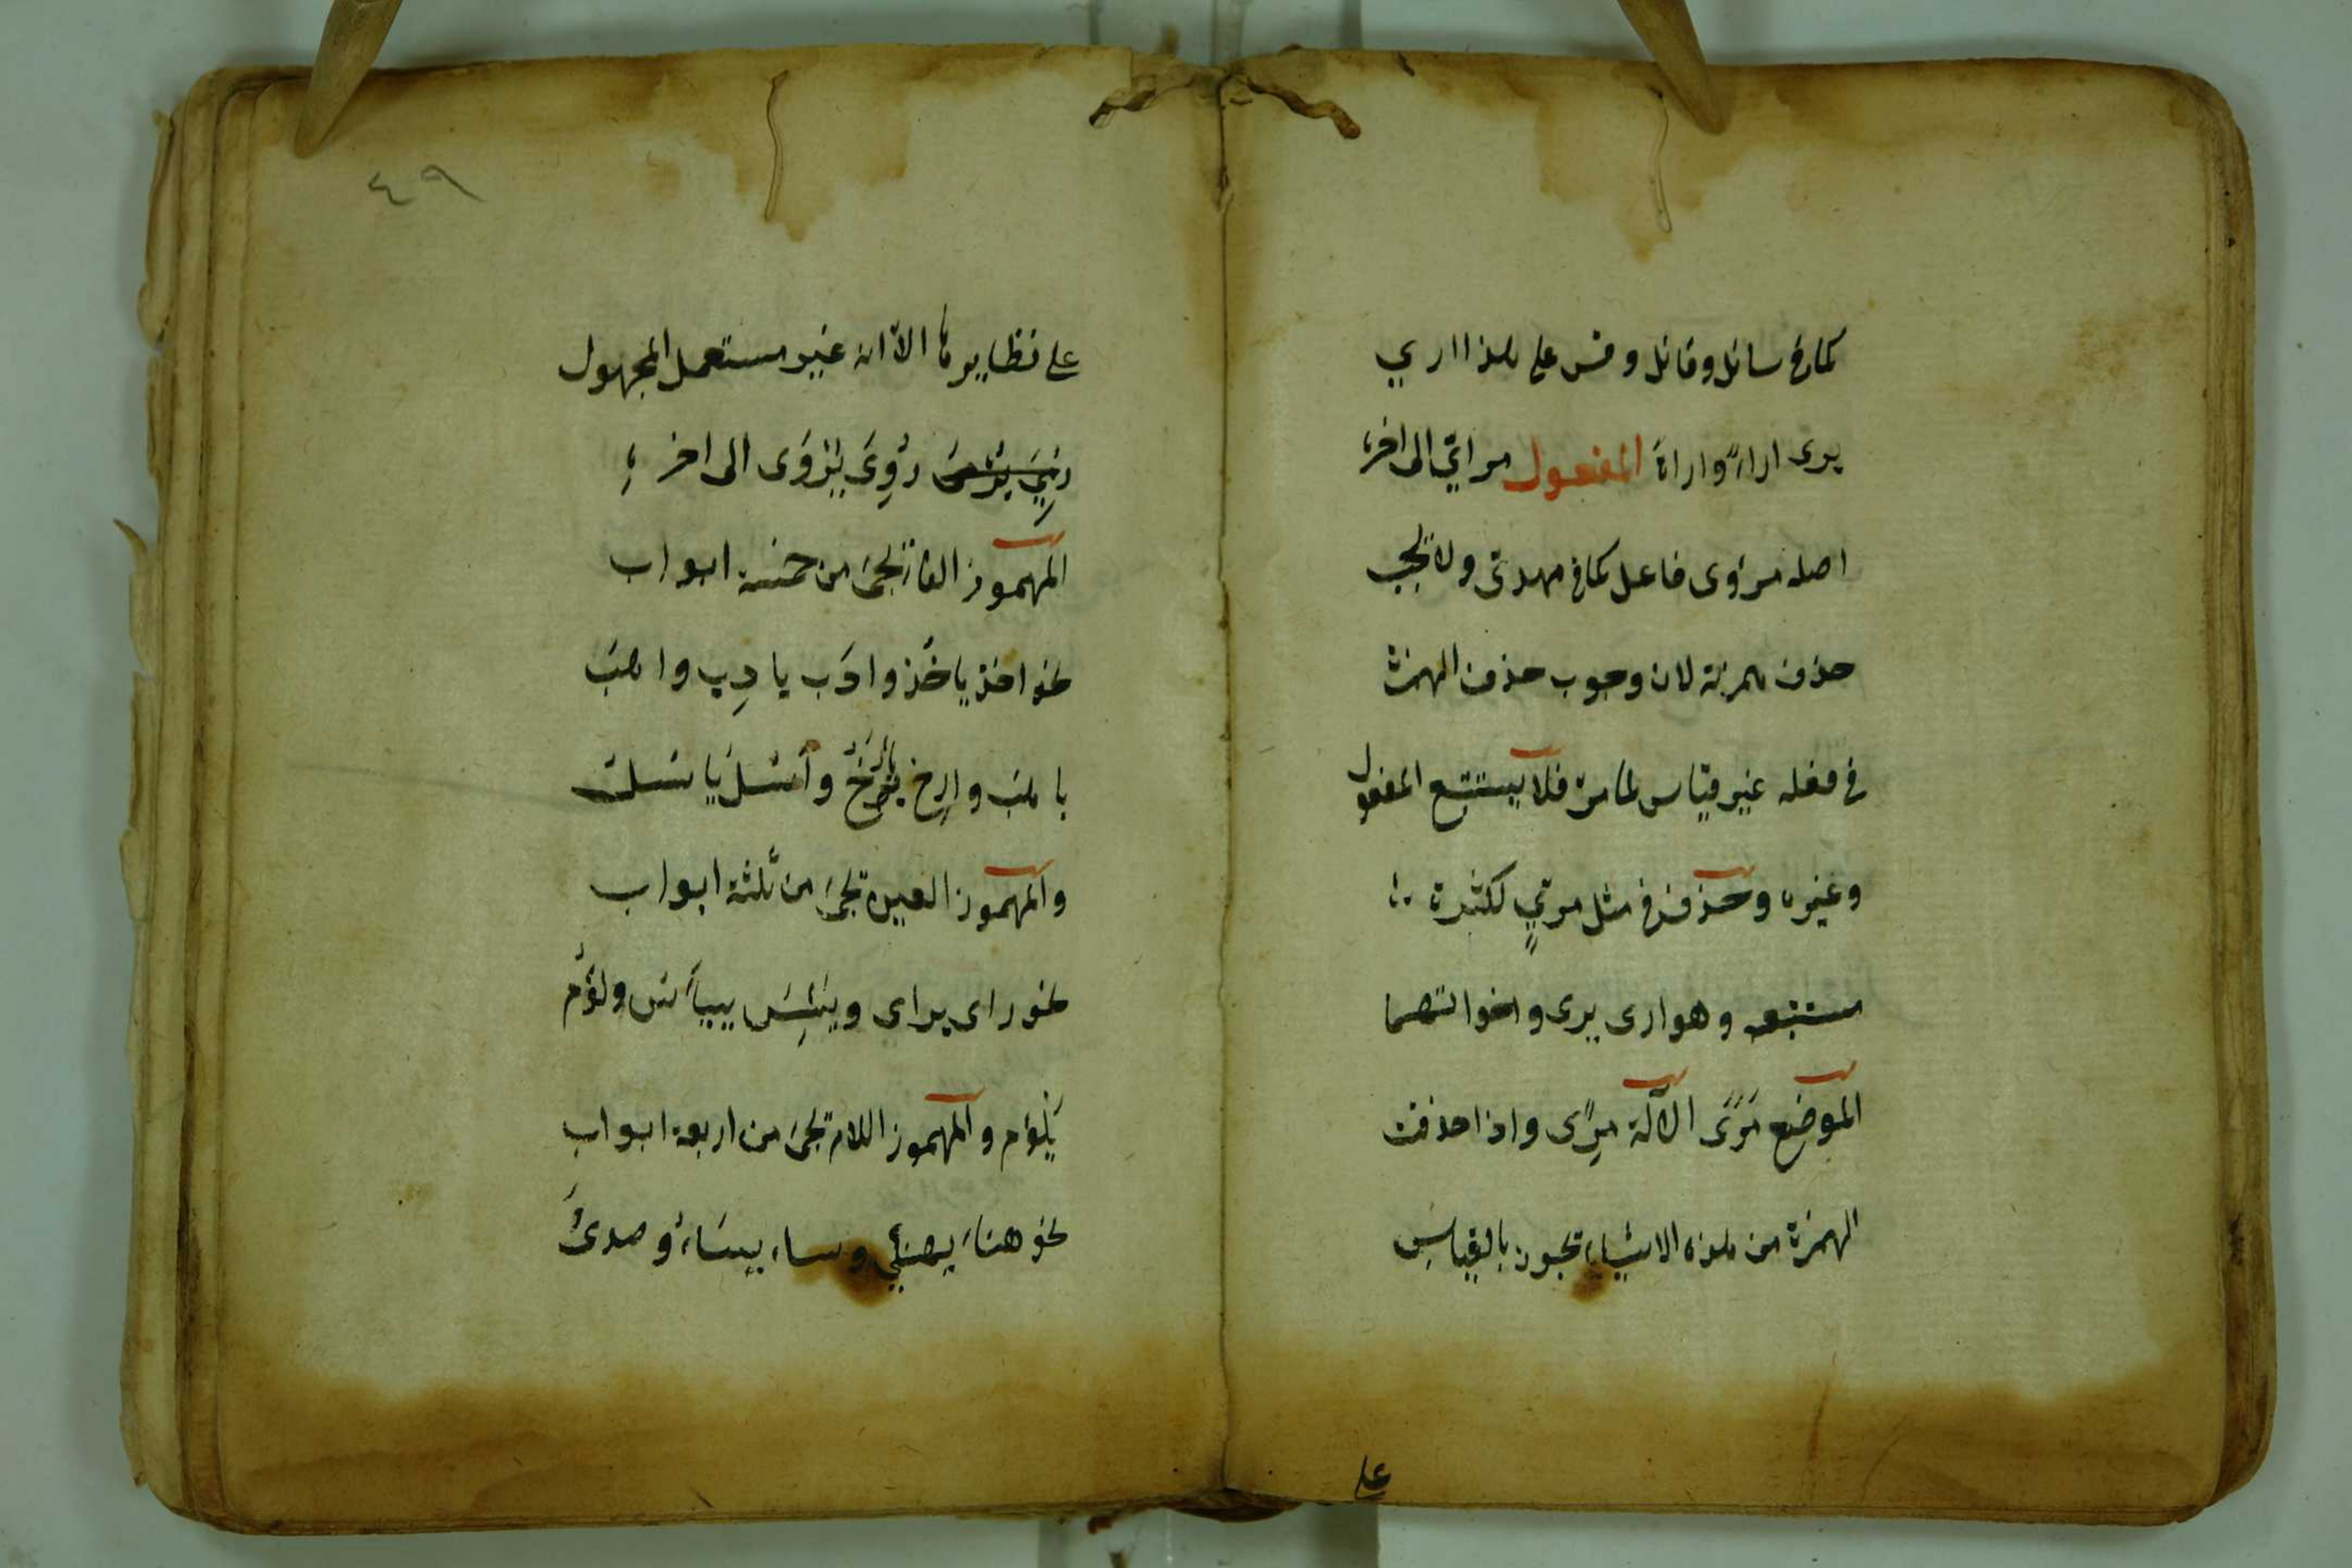 كما فى سائل وقائل وقس على هذا ارى
يرى اراءً واراة المفعول مرائي الى اخره
اصله مرؤى فاعل كما فى مهدى ولا تجب
حذف همزته لان وجوب حذف الهمزة
فى فعله غير قياس لما مر فلا يستتبع المفعول
وغيره وحذف فى مثل مرىٍ لكثرة
مستتبعه وهو ارى يرى واخواتهما
الموضع مَرًى الآلة مِرًى واذا حذفت
الهمزة من هذه الاشياء تجوز بالقياس
على
٤٩
على نظايرها الاّ انه غير مستعمل المجهول
رُؤِىَ يُرْؤَى الى اخره
المهموز الفاء تجئ من خمسة ابواب
نحو اخذ ياخُذ وادَب يادِب واهَبَ
ياهَبَ وارِخ يأرَخُ وأسُلَ ياسُلُ
والمهموز العين تجئ من ثلثة ابواب
نحو راى يراى ويَئِسَ ييأس ولؤُم
يَلْؤم والمهموز اللام تجئ من اربعة ابواب
نحو هناءَ يهنئ وساء يساءُ وصدئَ